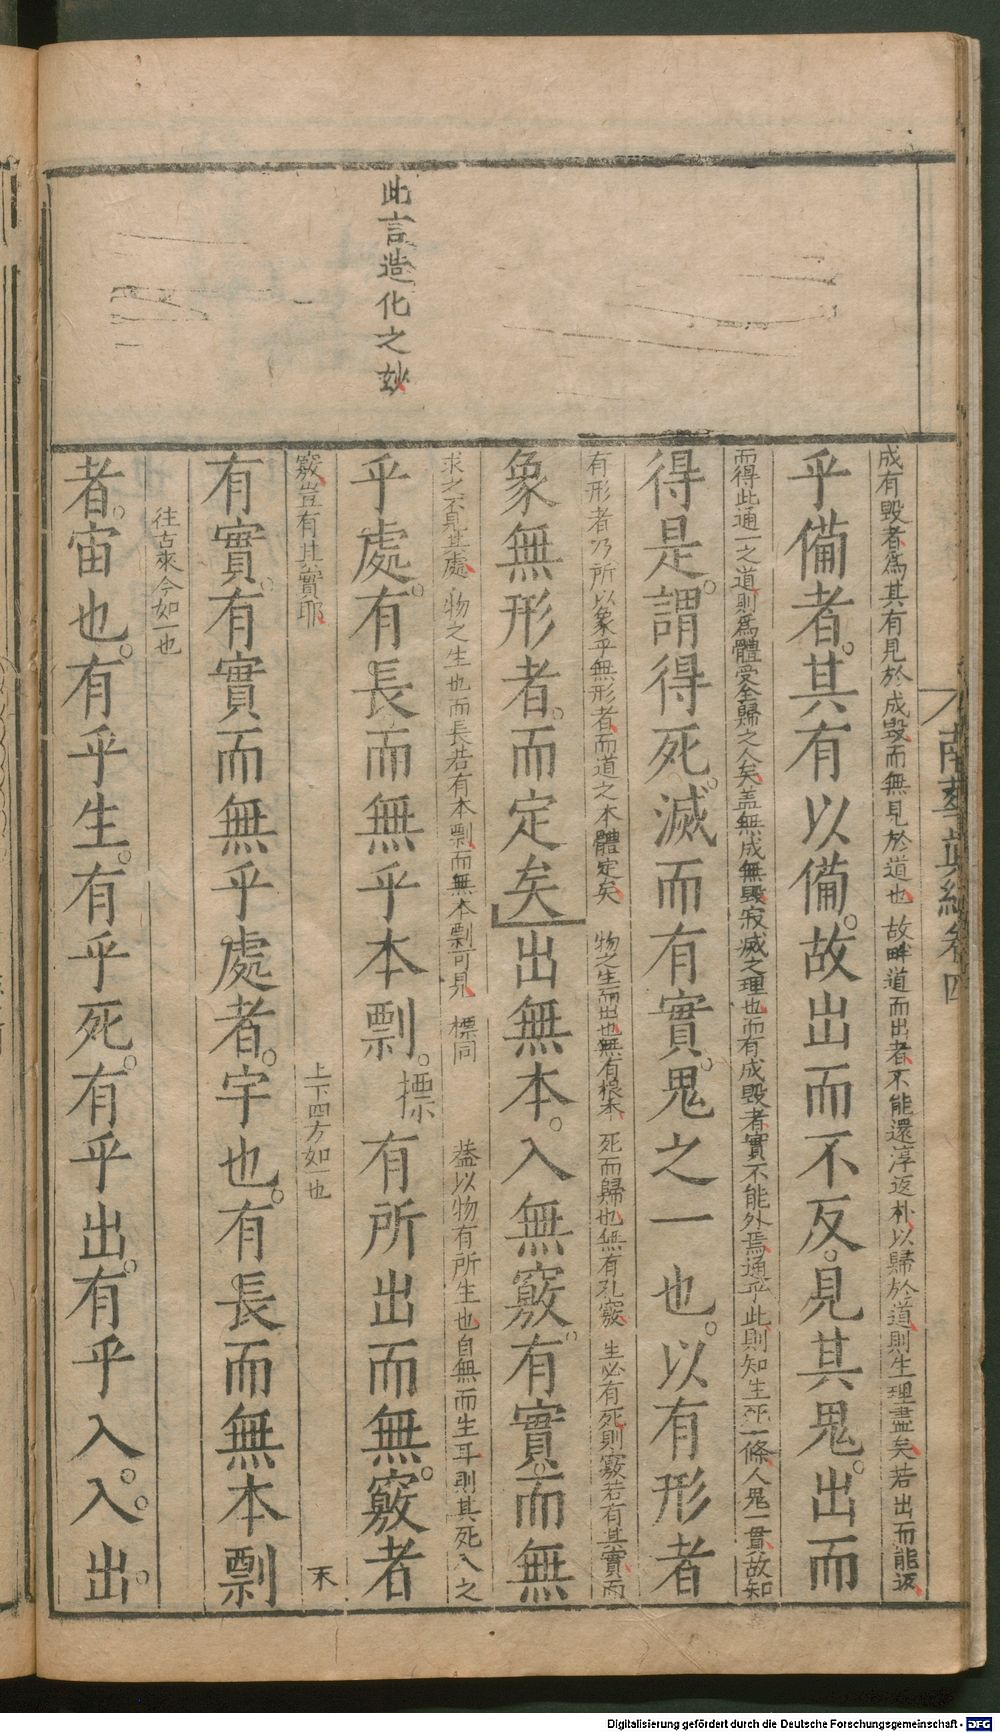 此言造化之玅
南華真經卷四
成有毀者爲其有見於成毀而無見於道也故畔道而出者不能還淳返朴以歸於道則生理盡矣若出而能返
乎備者其有以備故出而不反見其鬼出而
而得此通一之道則爲體受全歸之人矣盖無成無毀寂滅之理也而有成毀者實不能外焉通乎此則知生死一條人鬼一貫故知
得是謂得死滅而有實鬼之一也以有形者
有形者乃所以象乎無形者而道之本體定矣 物之生而出也無有根本 死而歸也無有孔竅 生必有死則竅若有其實而
象無形者而定矣出無本入無竅有實而無
求之不見其處 物之生也而長若有本剽而無本剽可見 標同 葢以物有所生也自無而生耳則其死入之
乎處有長而無乎本剽 摽 有所出而無竅者
竅豈有其實耶 上下四方如一也 末
有實有實而無乎處者宇也有長而無本剽
往古來今如一也
者宙也有乎生有乎死有乎出有乎入入出
Digitalisierung gefördert durch die Deutsche Forschungsgemeinschaft - DFG